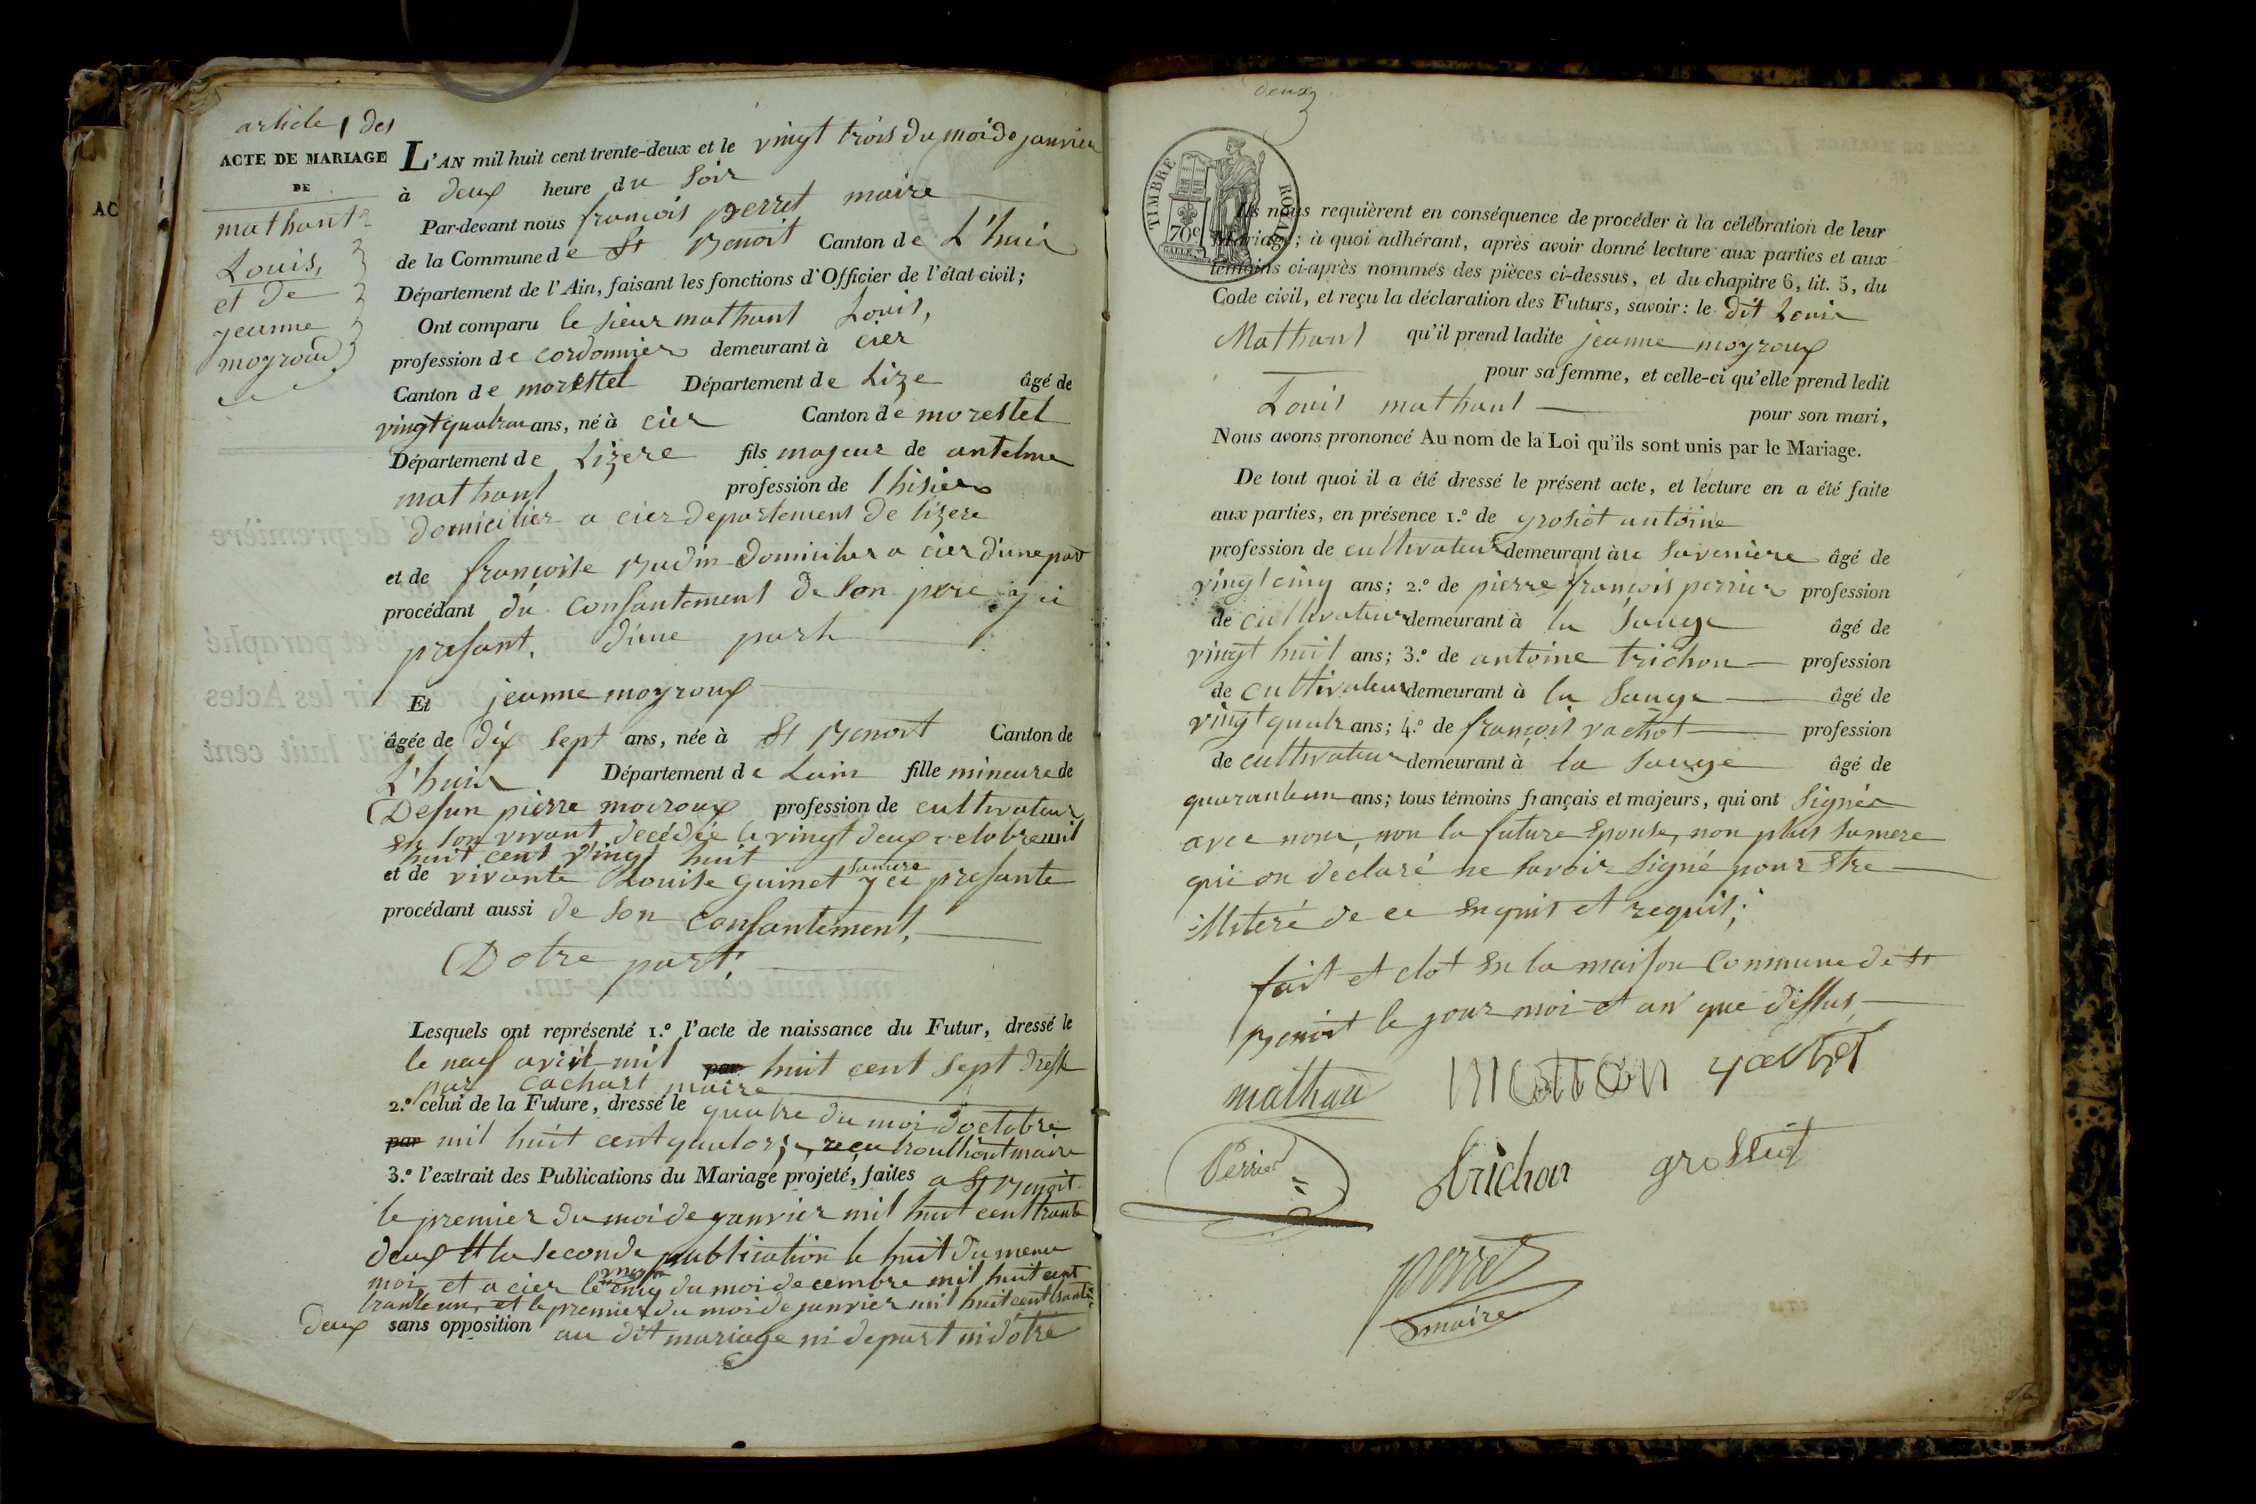 article 1 des
ACTE DE MARIAGE
DE
mathant
Louis,
et de
jeanne
moyroud
AC
L'AN mil huit cent trente-deux et le vingt trois du moi de janvier
à deux heure du soir
Par-devant nous francois perret maire
de la Commune de St Benoit Canton de L'huis
Département de l'Ain, faisant les fonctions d'Officier de l'état civil;
Ont comparu le sieur mathant Louis,
profession de cordonnier demeurant à cier
Canton de morestel Département de Lize âgé de
vingt quatre ans, né à cier Canton de morestel
Département de Lizere fils majeur de antelme
mathant profession de thisier
domicilier a cier departement de lizere
et de francoise Budin domicilier a cier d'une part
procédant du consantement de son pere y ci
presant. d'une part
Et jeanne moyroux
âgée de dix sept ans, née à St Benoit Canton de
L'huis Département de Lain fille mineure de
Defun pierre moiroux profession de cultivateur
en son vivant decédée le vingt deux octobre mil
huit cent vingt huit
et de vivante Louise guinet samere y ci presante
procédant aussi de son consantement,
D otre part,
Lesquels ont représenté 1.º l'acte de naissance du Futur, dressé le
le neuf avril mil par huit cent sept dresse
par cachart maire
2.º celui de la Future, dressé le quatre du moi d'octobre
par mil huit cent quatorze, recu trouthont maire
3.º l'extrait des Publications du Mariage projeté, faites a St Benoit
le premier du moi de janvier mil huit cent trante
deux et la seconde publication le huit du meme
moi, et a cier le vingt cinq du moi decembre mil huit cent
trante un, et le premier du moi de janvier mil huit cent trante
deux sans opposition au dit mariage ni de part ni d'otre
deux
TIMBRE ROYAL
70c
Ils nous requièrent en conséquence de procéder à la célébration de leur
Mariage; à quoi adhérant, après avoir donné lecture aux parties et aux
témoins ci-après nommés des pièces ci-dessus, et du chapitre 6, tit. 5, du
Code civil, et reçu la déclaration des Futurs, savoir: le dit Louis
Mathant qu'il prend ladite jeanne moyroux
pour sa femme, et celle-ci qu'elle prend ledit
Louis mathant pour son mari,
Nous avons prononcé Au nom de la Loi qu'ils sont unis par le Mariage.
De tout quoi il a été dressé le présent acte, et lecture en a été faite
aux parties, en présence 1.º de grosiot antoine
profession de cultivateur demeurant à la saveniere âgé de
vingt cinq ans; 2.º de pierre françois perrier profession
de cultivateur demeurant à la Sauge âgé de
vingt huit ans; 3.º de antoine trichon profession
de cultivateur demeurant à la Sauge âgé de
vingt quatr ans; 4.º de françois vachot profession
de cultivateur demeurant à la Sauge âgé de
quarante un ans; tous témoins français et majeurs, qui ont signés
avec nous, non la future Epouse, non plus sa mere
qui on déclaré ne savoir signé pour Etre
illiteré de ce Enquis et requis;
fait et clot En la maison commune de St
Benoit le jour moi et an que dessus
mathan matan vachot
Perrier trichon grossiot
perret
maire